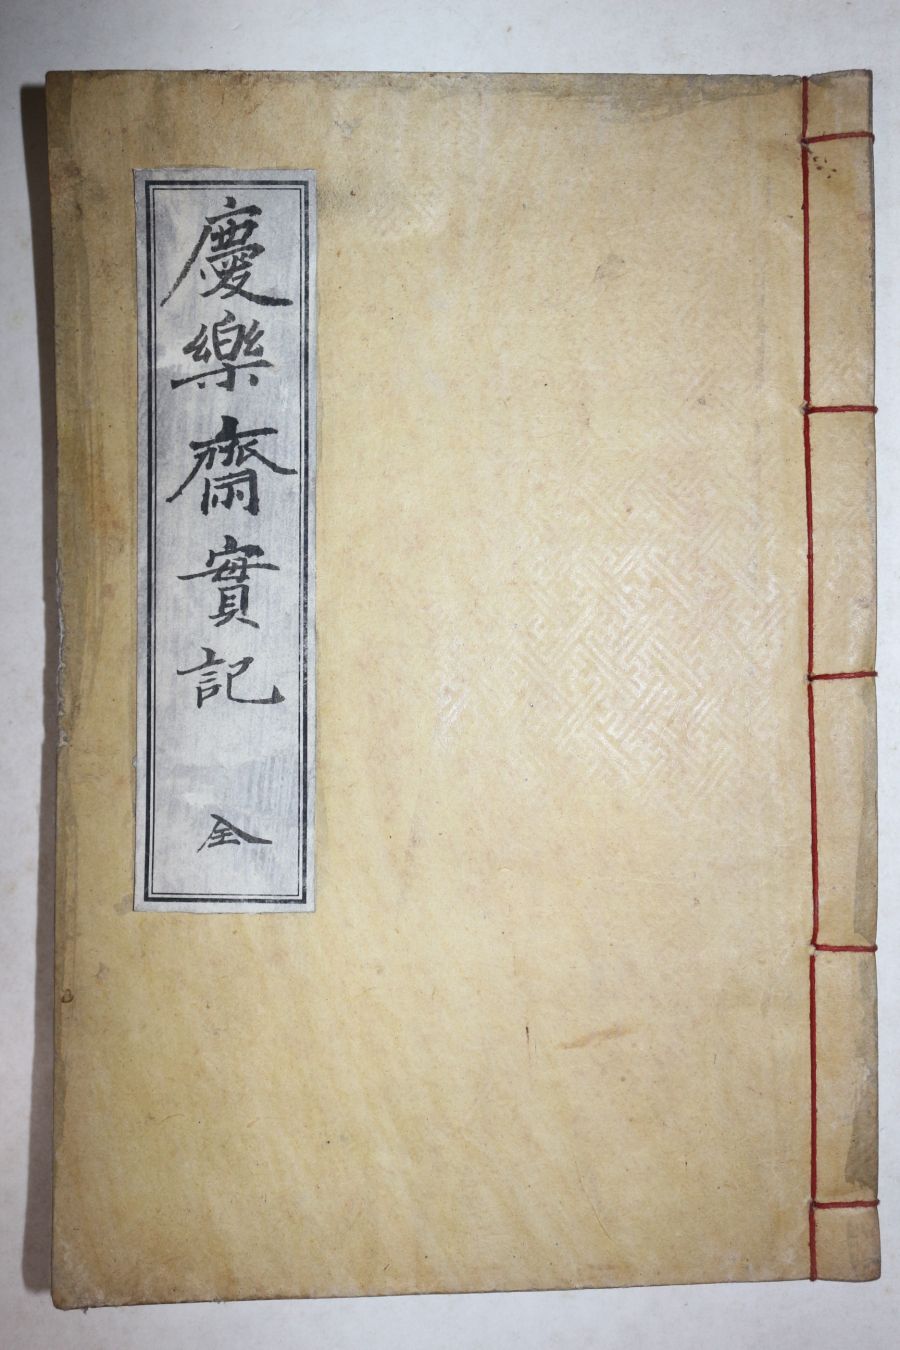 慶樂齋實記
全